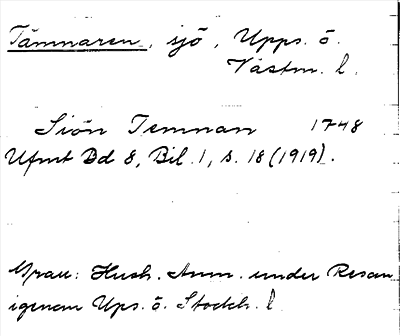 Tämnaren, sjö, Upps. ö.
Västm. l.
Siön Temnan 1748
Ufmt Bd 8, Bil. 1, s. 18 (1919).
Hush. Anm. under Resan
igenom Ups. ö. Stockh. l